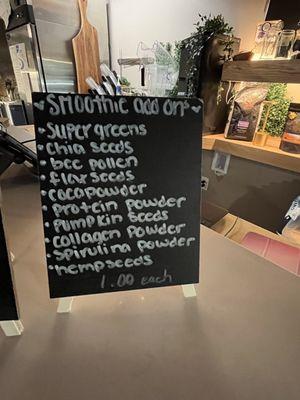 ♥ SMOOTHIE ADD ONS ♥
• Super greens
• Chia seeds
• bee pollen
• flax seeds
• coco powder
• Protein powder
• Pumpkin seeds
• Collagen Powder
• Spirulina Powder
• hemp seeds
1.00 each